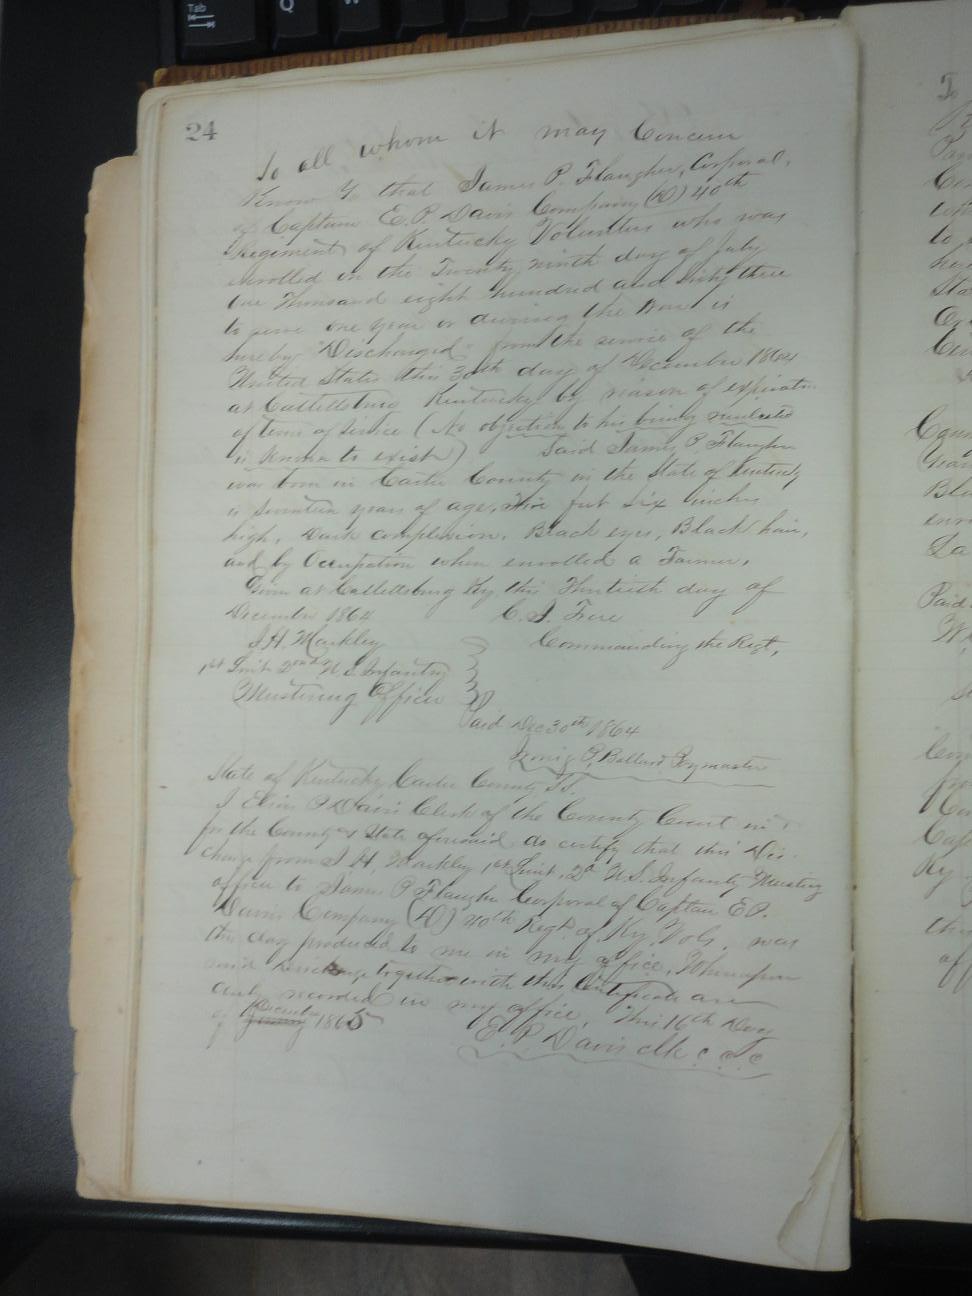 Tab
Q
24
To all whom it may Concern
Know Ye that James P. Flaugher, Corporal,
of Captain E. P. Davis Company (D) 40th
Regiment of Kentucky Volunteers who was
enrolled on the Twenty ninth day of July
One Thousand eight hundred and Sixty three
to serve one year or during the War is
hereby "Discharged" from the service of the
United States this 30th day of December 1864
at Catlettsburg Kentucky by reason of expiration
of term of service (No objection to his being reenlisted
is known to exist) Said James P. Flaugher
was born in Carter County in the State of Kentucky
is seventeen years of age, Five feet six inches
high, Dark complexion, Black eyes, Black hair,
and by Occupation when enrolled a Farmer.
Given at Catlettsburg Ky this Thirtieth day of
December 1864 C. J. True
J. H. Markley Commanding the Regt,
1st Lieut 2nd U.S. Infantry
Mustering Officer
Paid Dec 30th 1864
P. Ballard Paymaster
State of Kentucky Carter County
I Elias P Davis Clerk of the County Court in
for the County & State aforesaid do certify that this Dis-
charge from J. H. Markley 1st Lieut, 2d U.S. Infantry Mustering
officer to James P Flaugher Corporal of Captain E P.
Davis Company (D) 40th Regt. of Ky. Vols. was
this day produced to me in my office, Whereupon
said discharge together with this Certificate are
duly recorded in my office. This 16th day
of December 1865 E. P. Davis clk c c c